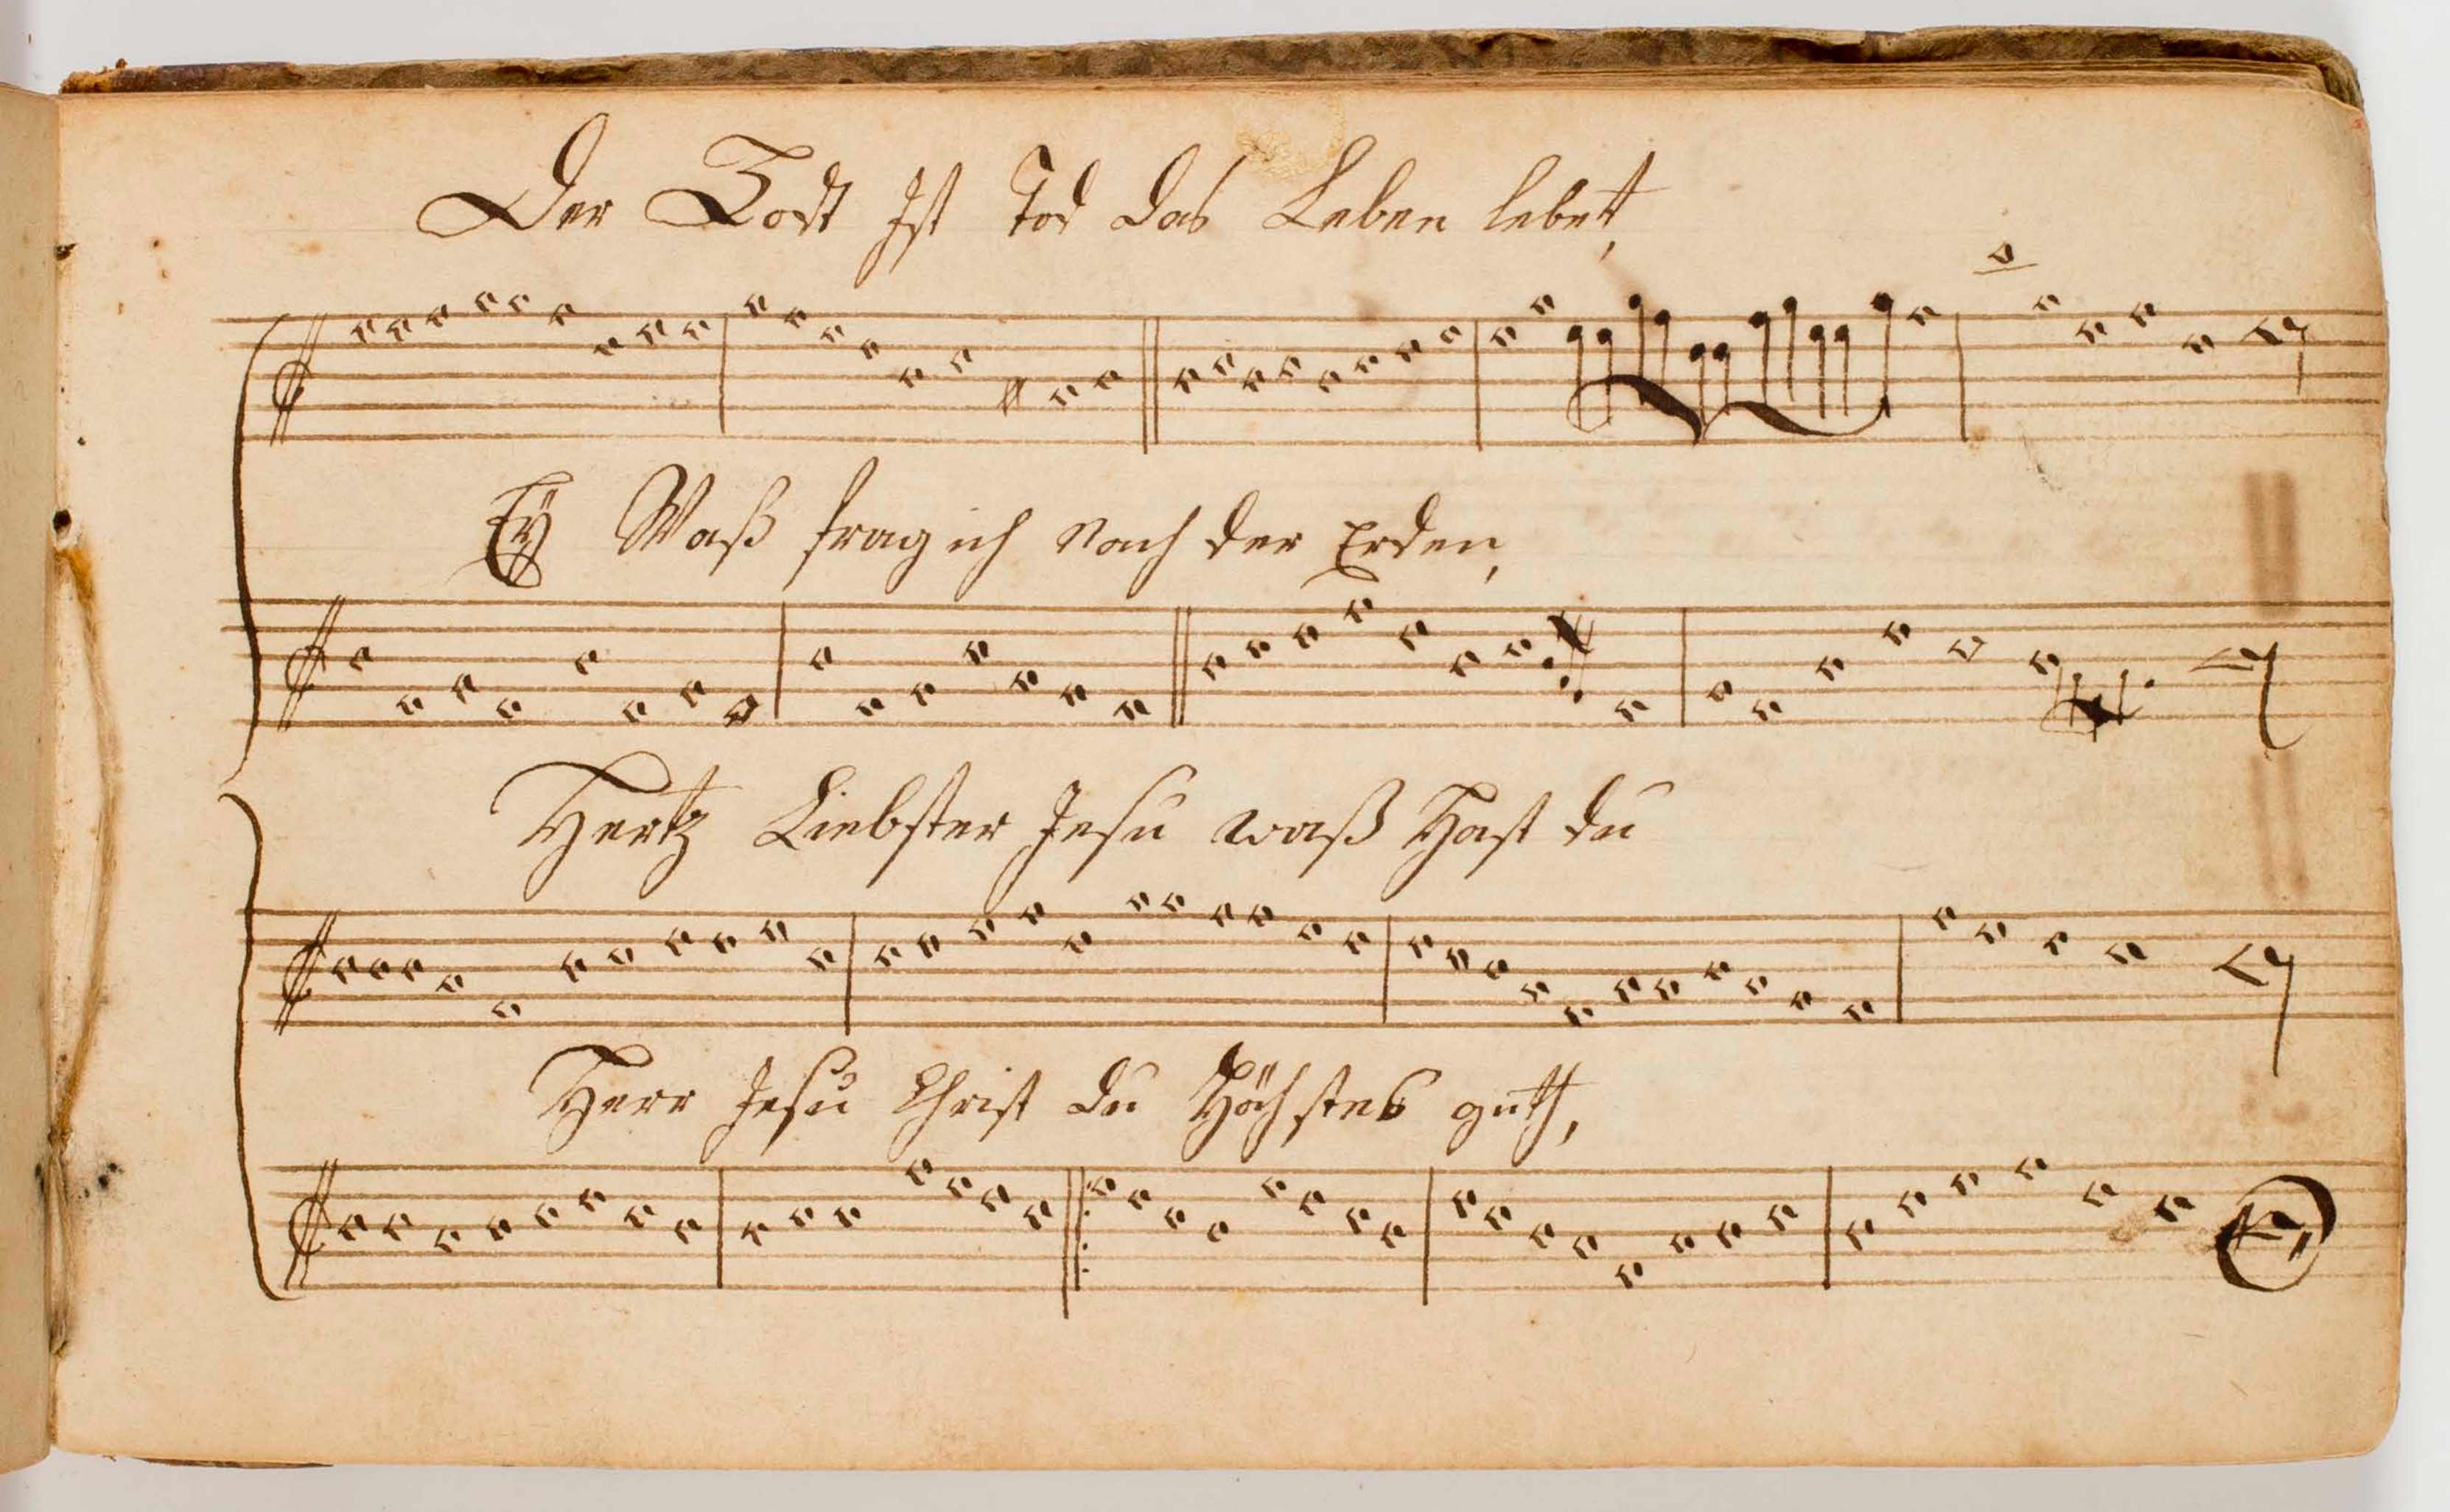 Der Todt Ist Tod das Leben lebet,
Ey Waß frag ich Nach der Erden,
Hertz Liebster Jesu waß Hast du
Herr Jesu Christ du Höchstes guth,